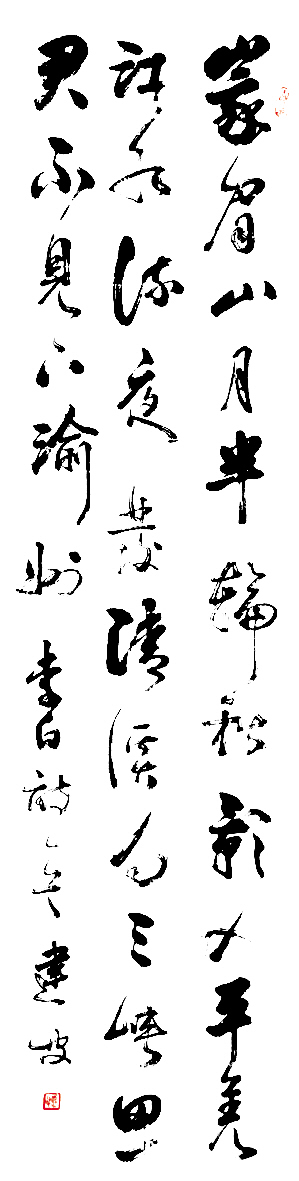 峩眉山月半輪秋影入平羌
江水流夜發清溪向三峽思
君不見下渝州 李白詩